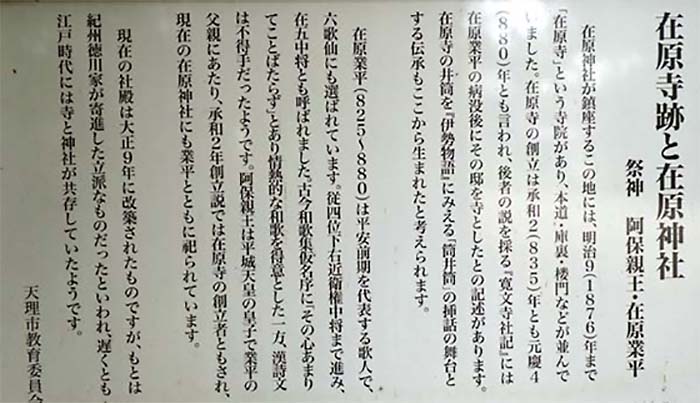 在原寺跡と在原神社
祭神　阿保親王・在原業平
在原神社が鎮座するこの地には、明治9(1876)年まで
「在原寺」という寺院があり、本道・庫裏・楼門などが並んで
いました。在原寺の創立は承和2(835)年とも元慶4
(880)年とも言われ、後者の説を採る『寛文寺社記』には
在原業平の病没後にその邸を寺としたとの記述があります。
在原寺の井筒を『伊勢物語』にみえる「筒井筒」の挿話の舞台と
する伝承もここから生まれたと考えられます。
在原業平(825〜880)は平安前期を代表する歌人で、
六歌仙にも選ばれています。従四位下右近衛権中将まで進み、
在五中将とも呼ばれました。古今和歌集仮名序に「その心あまり
てことばたらず」とあり情熱的な和歌を得意とした一方、漢詩文
は不得手だったようです。阿保親王は平城天皇の皇子で業平の
父親にあたり、承和2年創立説では在原寺の創立者ともされ、
現在の在原神社にも業平とともに祀られています。
現在の社殿は大正9年に改築されたものですが、もとは
紀州徳川家が寄進した立派なものだったといわれ、遅くとも
江戸時代には寺と神社が共存していたようです。
天理市教育委員会